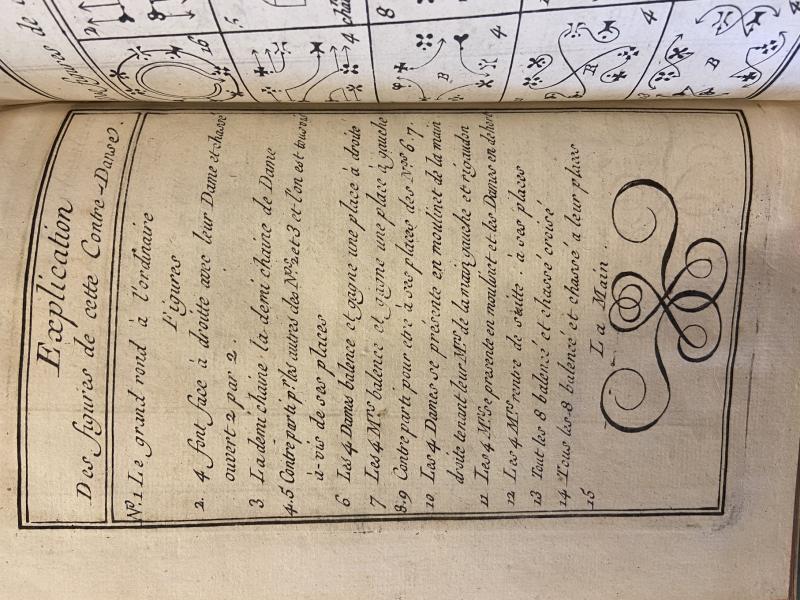 Explication
Des figures de cette Contre-Danse.
No. 1 Le grand rond à l'ordinaire
Figures
2. 4 font face à droitte avec leur Dame et chassé
ouvert 2 par 2.
3 La demi chaine la demi chaine de Dame
4.5 Contre parti pr les autres des Nos 2 et 3 et l'on est tous vis
à-vis de ses places
6 Les 4 Dames balence et gagne une place à droite
7 Les 4 Mrs balence et gagne une place à gauche
8.9 Contre parti pour etre à ses places des Nos 6.7.
10 Les 4 Dames se présente en moulinet de la main
droite tenant leur Mrs de la main gauche et rigaudon
11 Les 4 Mrs se presente en moulinet et les Dames en dehors
12 Les 4 Mrs rentre de suitte à ses places
13 Tout les 8 balencé et chassé croisé
14 Tous les 8 balencé et chassé à leur places
15
La Main.
16
4
8
4
B
H
4
B